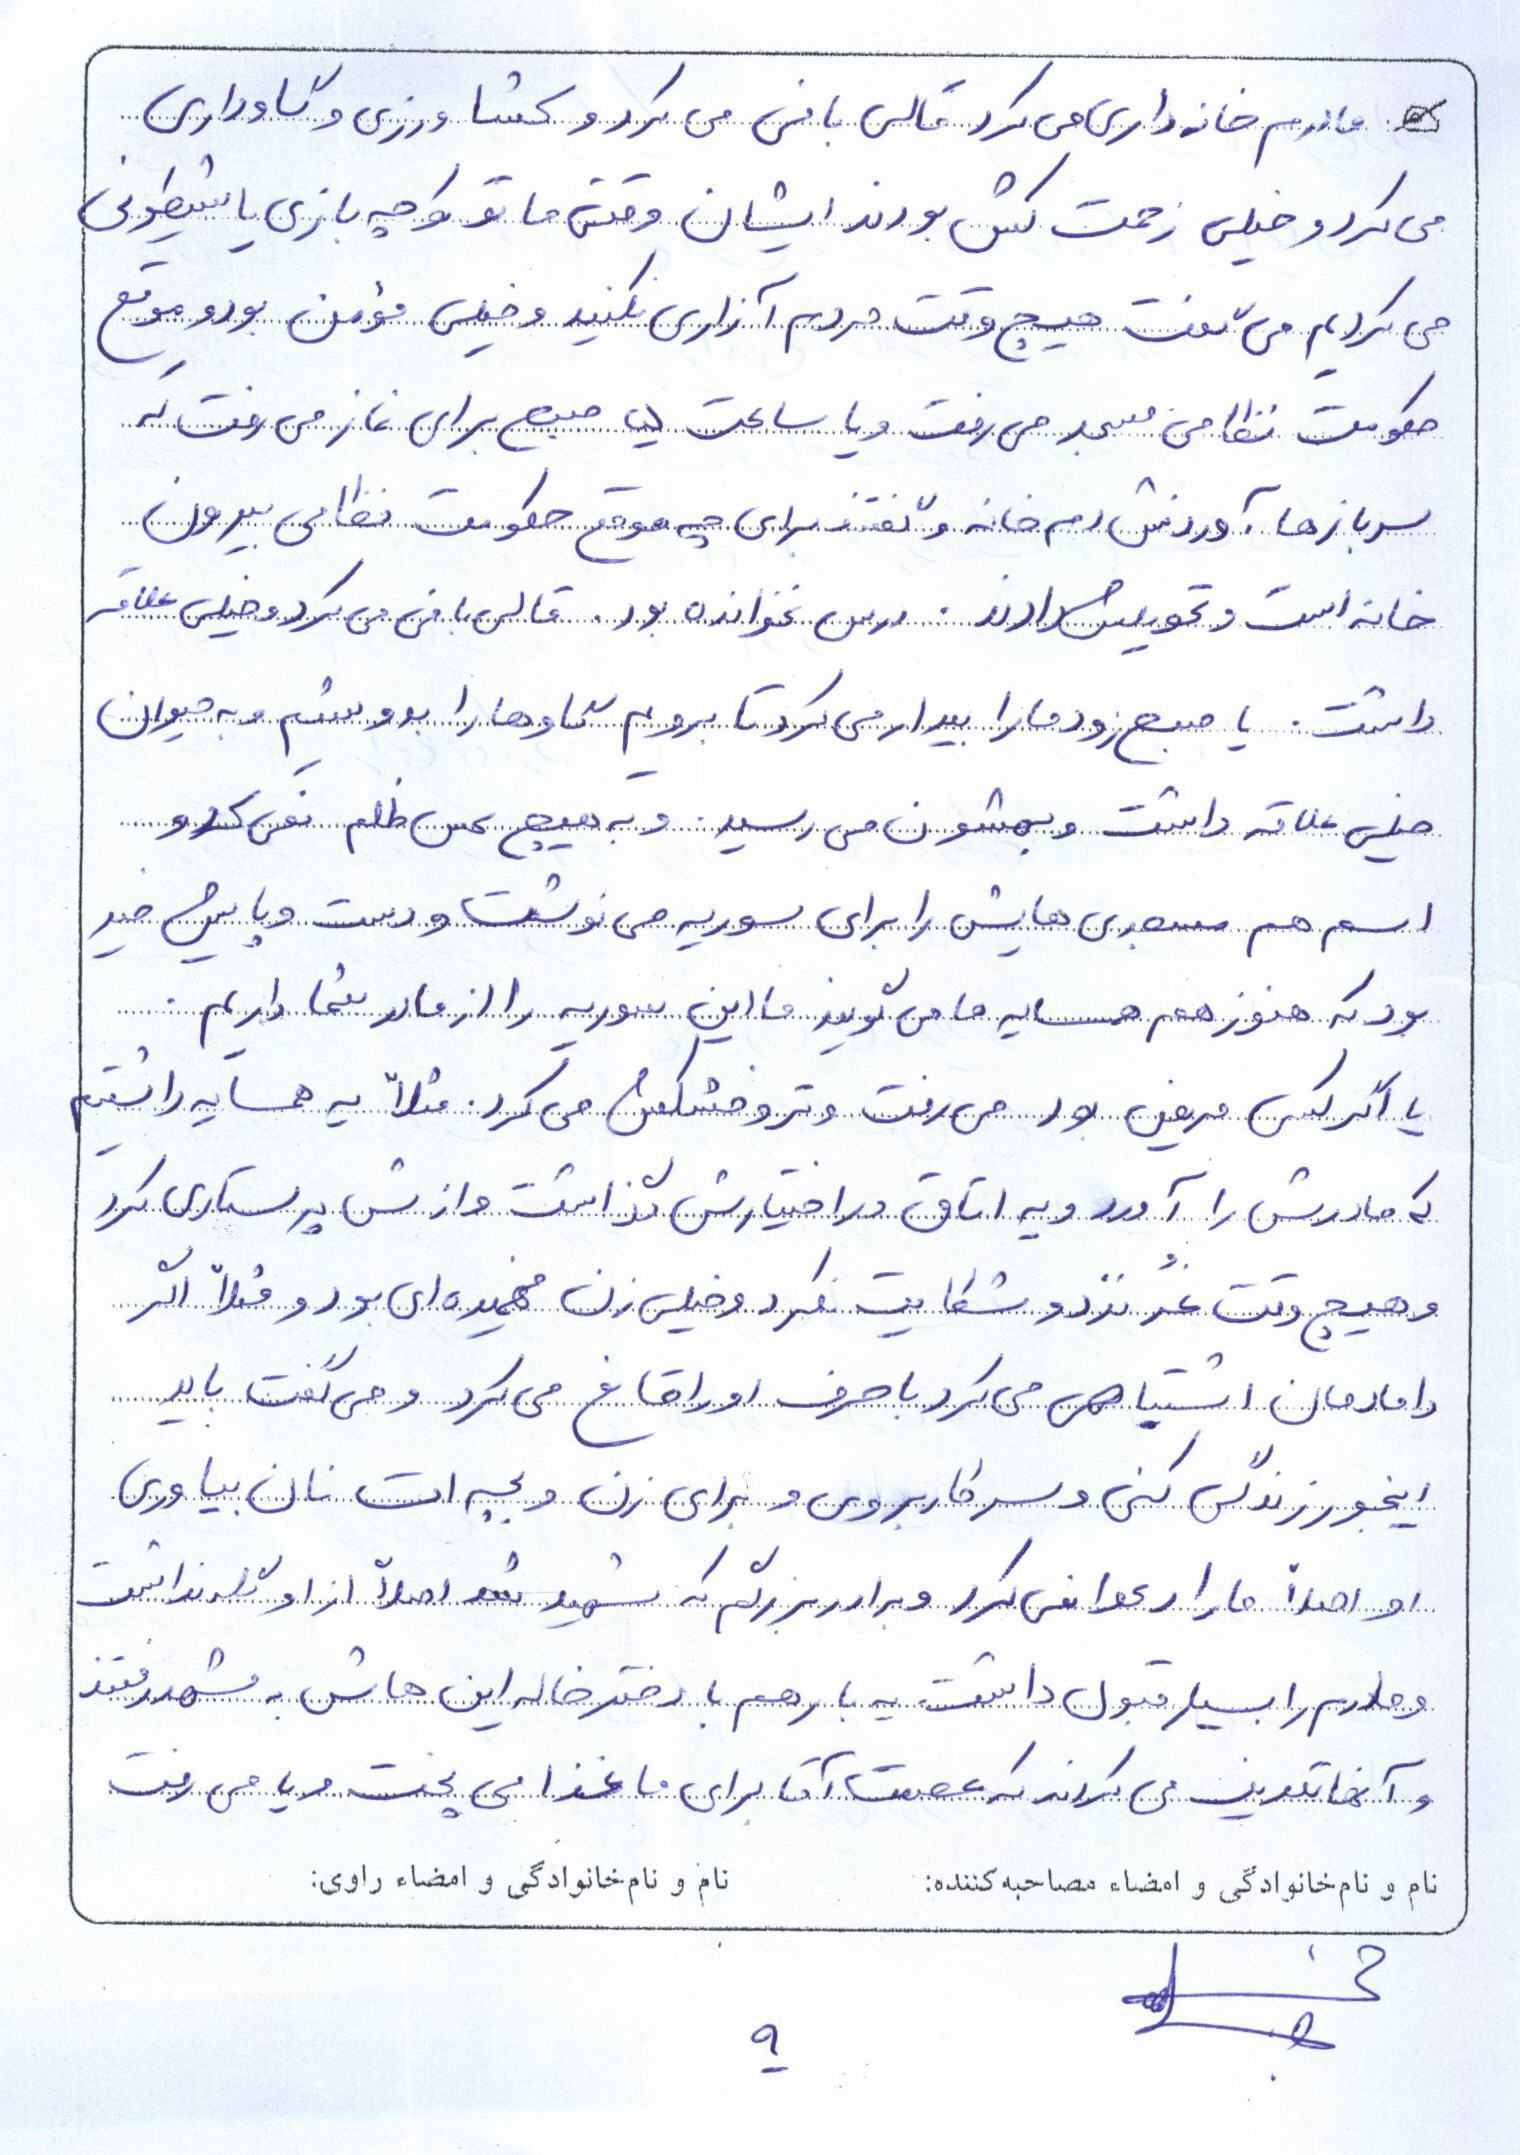 مادرم خانه داری می کرد قالی بافی می کرد و کشاورزی و گاوداری
می کرد و خیلی زحمت کش بودند ایشان وقتی ما تو کوچه بازی یا شیطونی
می کردیم می گفت هیچ وقت مردم آزاری نکنید و خیلی مؤمن بود و موقع
حکومت نظامی مسجد می رفت و یا ساعت صبح برای نماز می رفت که
سربازها آوردنش دم خانه و گفتند برای چه موقع حکومت نظامی بیرون
خانه است و تحویلش دادند . درس نخوانده بود . قالی بافی می کرد و خیلی علاقه
داشت . یا صبح زود ما را بیدار می کرد تا برویم گاوها را بدوشیم و به حیوان
خیلی علاقه داشت و بهشون می رسید . و به هیچ کس ظلم نمی کرد و
اسم هم هایش را برای سوریه می نوشت و دست و پایش خیر
بود که هنوز هم همسایه ها می گویند ما این سوریه را از مادر شما داریم .
یا اگر کسی مریض بود می رفت و تر و خشکش می کرد . مثلاً یه همسایه داشتیم
که مادرش را آورد و یه اتاق در اختیارش گذاشت و ازش پرستاری کرد
و هیچ وقت غُر نزد و شکایت نکرد و خیلی زن فهمیده ای بود و مثلاً اگر
دامادمان اشتباهی می کرد با حرف او را قانع می کرد و می گفت باید
اینجور زندگی کنی و سر کار بروی و برای زن و بچه ات نان بیاوری
او اصلاً ما را دعوا نمی کرد و برادر بزرگم که شهید شد اصلاً از او گله نداشت
و مادرم را بسیار قبول داشت یه بار هم با دختر خاله این هاش به مشهد رفتند
و آنها تعریف می کردند که عصمت آقا برای ما غذا می پخت و یا می رفت
نام و نام‌خانوادگی و امضاء مصاحبه‌کننده: نام و نام‌خانوادگی و امضاء راوی:
۹